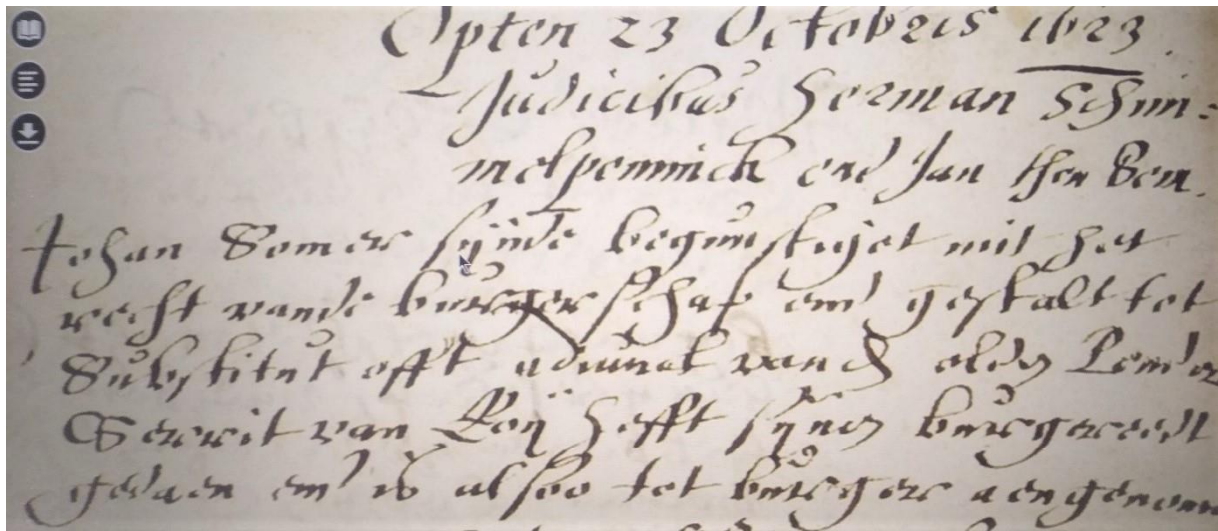 Opten 23 Octobris 1623.
Judicibus Herman Schim-
melpenninck end Jan then
Johan Somer sijnde begunstiget mit het
recht vande burgerschap end gestalt tot
Substitut offt adiunct van d olden
Gerrit van Roij hefft sijnen burgereedt
gedaen end is alsoo tot burger aengenom